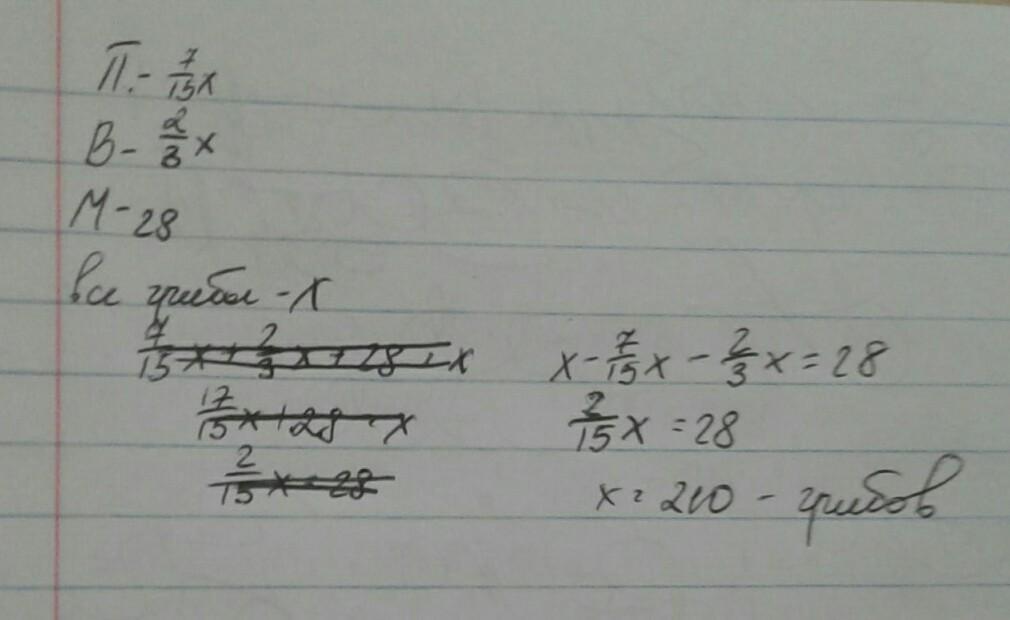 П.- 7/15 x
В - 2/3 x
М - 28
все грибы - x
7/15 x + 2/3 x + 28 = x
17/15 x + 28 = x
2/15 x = 28
x - 7/15 x - 2/3 x = 28
2/15 x = 28
x = 210 - грибов